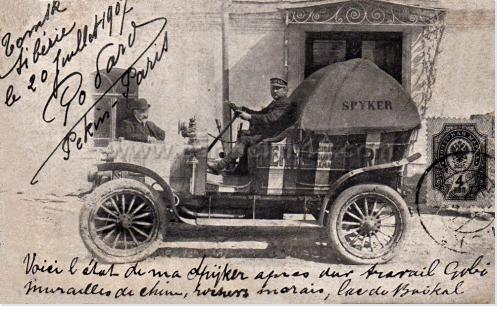 Tomsk
Sibérie
le 20 Juillet 1907
Go Pard
Pékin-Paris
SPYKER
4
Voici l'état de ma Spijker apres dur travail Gobi
Murailles de chine, rochers marais, lac de Baïkal